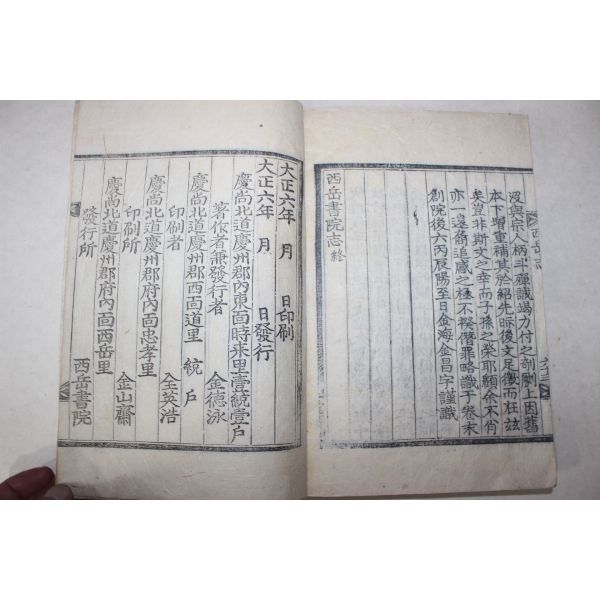 西岳志
沒與宗人柄㳂殫誠竭力付之剞劂上因舊
本下增重補其於紹先眎後文足徵而在玆
矣豈非斯文之幸而子孫之榮耶顧余不肖
亦一邊裔追感之極不揆僭罪略識于卷末
創院後六丙辰陽至日金海金昌宇謹識
西岳書院志終
大正六年 月 日印刷
大正六年 月 日發行
慶尙北道慶州郡內東面時来里壹統壹戶
著作者兼發行者 金德泳
慶尙北道慶州郡西面道里 統 戶
印刷者 全英浩
慶尙北道慶州郡府內面忠孝里
印刷所 金山齋
慶尙北道慶州郡府內面西岳里
發行所 西岳書院